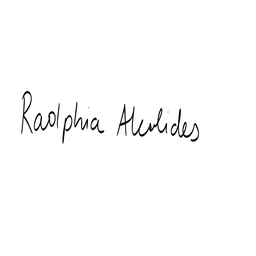 Radphia Alculides